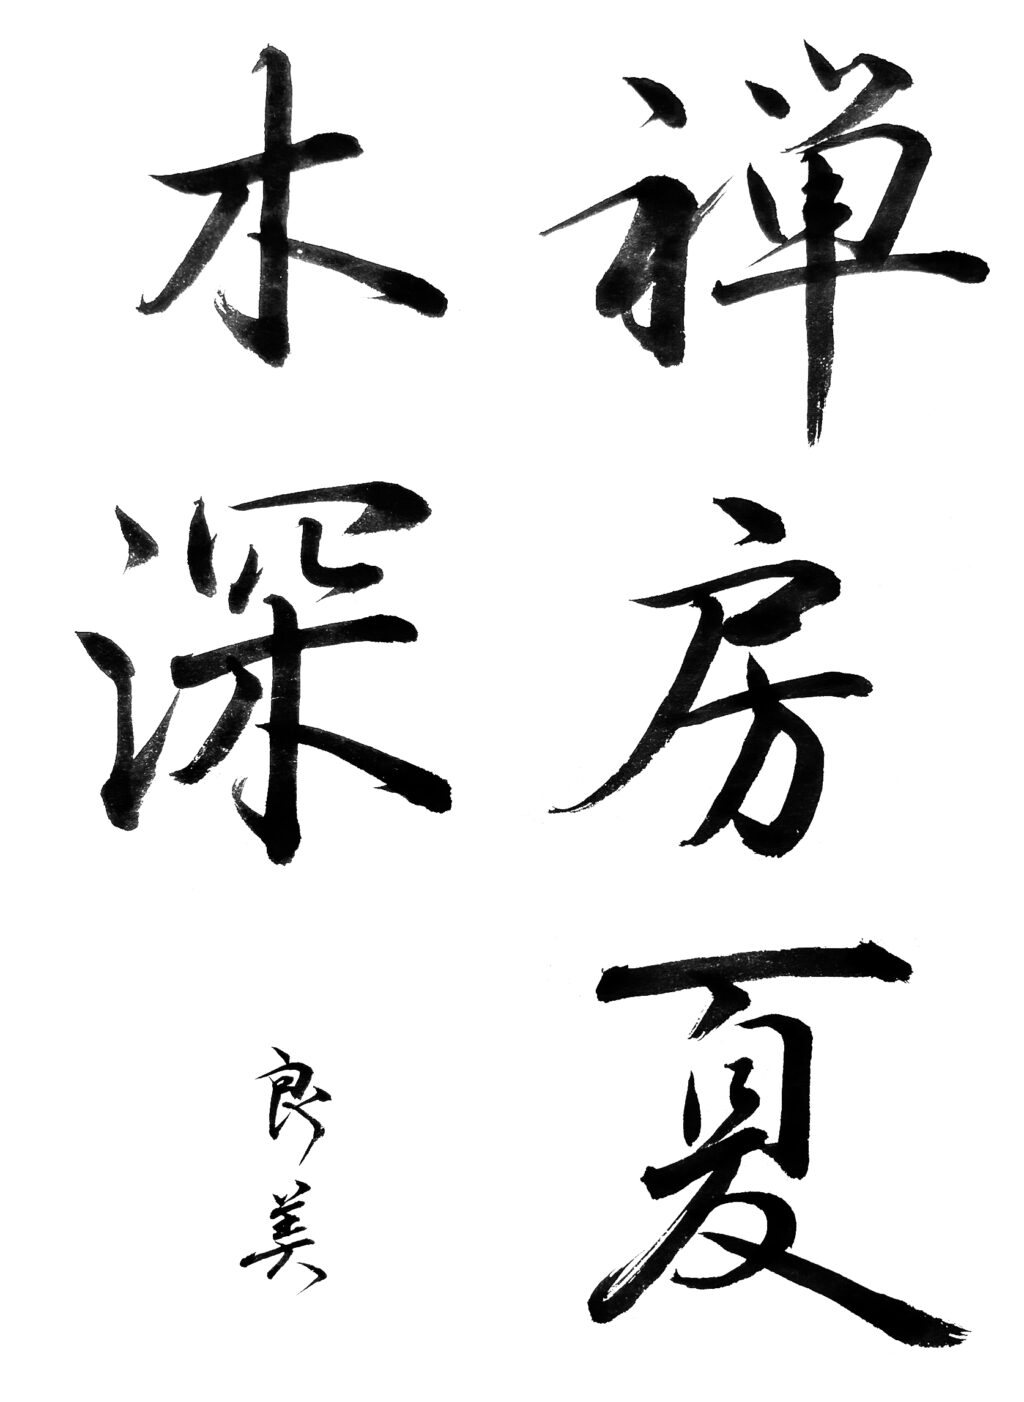 禅房夏
木深
良美